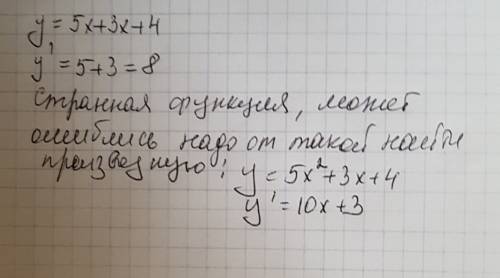 y = 5x+3x+4
y' = 5+3 = 8
Странная функция, может
ошиблись надо от такой найти
производную:
y = 5x²+3x+4
y' = 10x+3